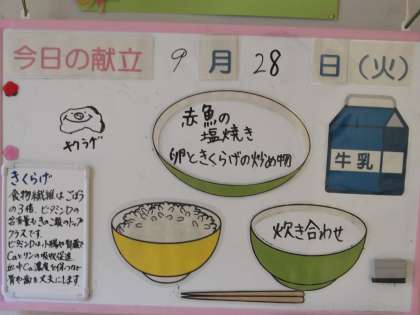 今日の献立 9月28日(火)
キクラゲ
赤魚の
塩焼き
卵ときくらげの炒め物
牛乳
炊き合わせ
きくらげ
食物繊維はごぼう
の3倍、ビタミンDの
含有量もきのこ類のトップ
クラスです。
ビタミンDは小腸や腎臓で
CaとリンのA吸収促進
血中Ca濃度を保つなど
骨や歯を丈夫にします